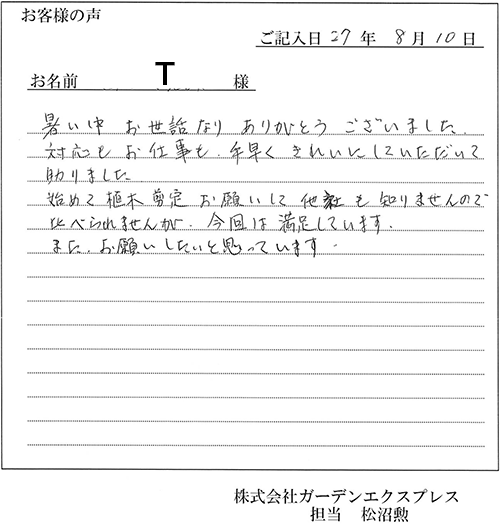 お客様の声
ご記入日 27 年 8 月 10 日
お名前 T 様
暑い中 お世話なり ありがとう ございました.
対応も お仕事も、手早く きれいにしていただいて
助りました
始めて 植木 剪定 お願いして 他社も 知りませんので
比べられませんが、今回は 満足しています.
また、お願いしたいと思っています.
株式会社ガーデンエクスプレス
担当 松沼勲